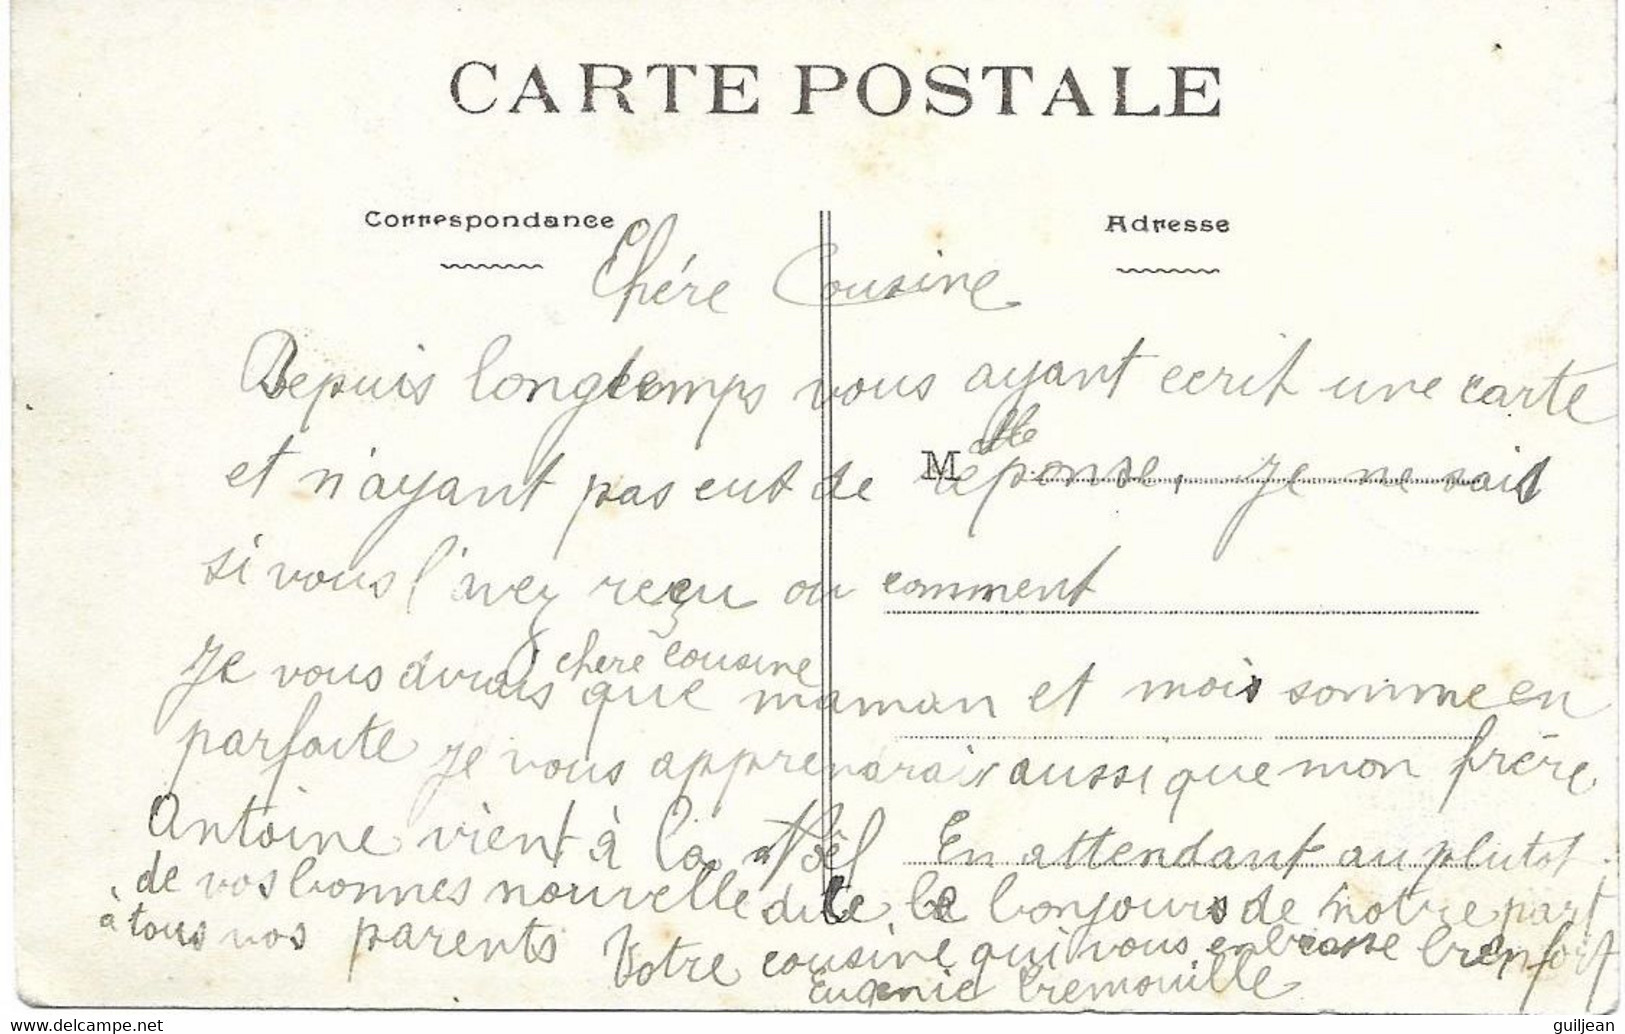 CARTE POSTALE
Correspondance
Adresse
Chére Cousine
Depuis longtemps vous ayant ecrit une carte
M
et n'ayant pas eut de réponse, je ne sais
si vous l'avez reçu ou comment
Je vous dirais chere cousine que maman et moi somme en
parfaite je vous apprendrais aussi que mon frère
Antoine vient à la Noël En attendant au plutot
de vos bonnes nouvelle dite le bonjours de notre part
à tous vos parents Votre cousine qui vous enbrasse bien fort
Eugenie Cremouille
guiljean
www.delcampe.net